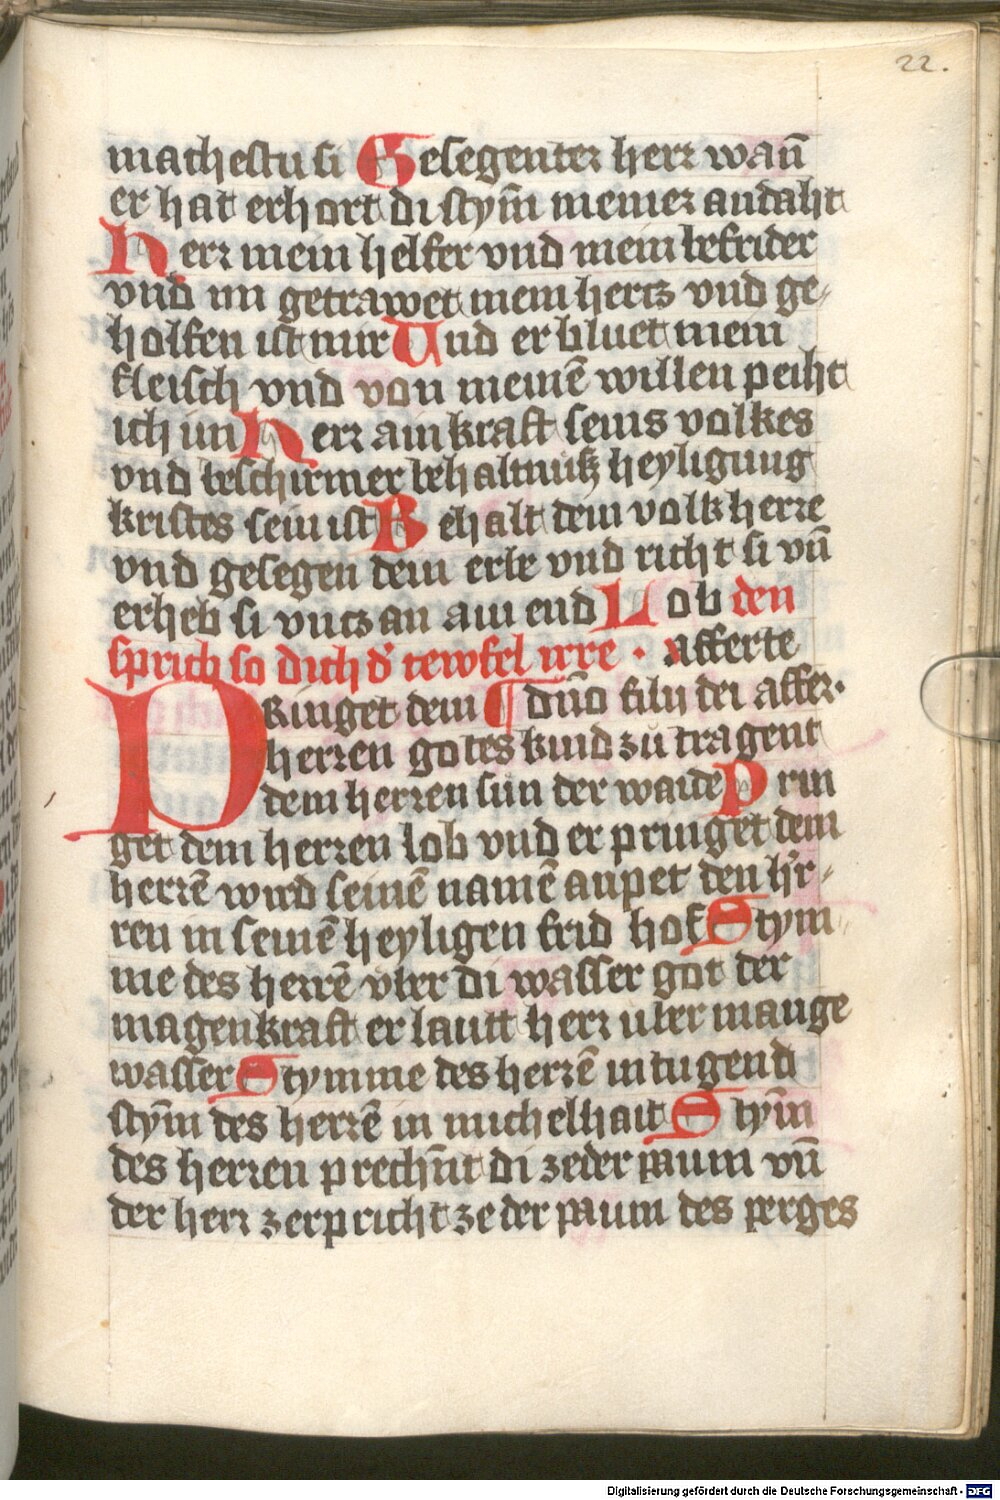 22.
machestu si Gesegenter herr wan̄
er hat erhort di stym̄ meiner andaht
Herr mein helfer vnd mein befrider
vnd im getrawet mein hertz vnd ge-
holfen ist mir Und er bluet mein
fleisch vnd von meinē willen peiht
ich im Herr ain kraft seins volkes
vnd beschirmer behaltnuſz heyligung
kristes sein ist Behalt dein volk herre
vnd gesegen dein erbe vnd richt si vn̄
erheb si vntz an awi end Lob den
sprich so dich d' tewfel irre · Afferte
PRinget dem ¶ dn̄o filij dei affer·
herren gotes kind zů tragent
dem herren sun der waide Prin
get dem herren lob vnd er pringet dem
herrē wird seinē namē anpet den h'r-
ren in seinē heyligen frid hof Stym
me des herrē vber di wasser got der
magenkraft er lautt herr uber mange
wasser Stymme des herrē in tugend
stym̄ des herrē in michelhait Stym̄
des herren prechn̄t di zeder paum vn̄
der herr zerpricht zeder paum des perges
Digitalisierung gefördert durch die Deutsche Forschungsgemeinschaft - DFG